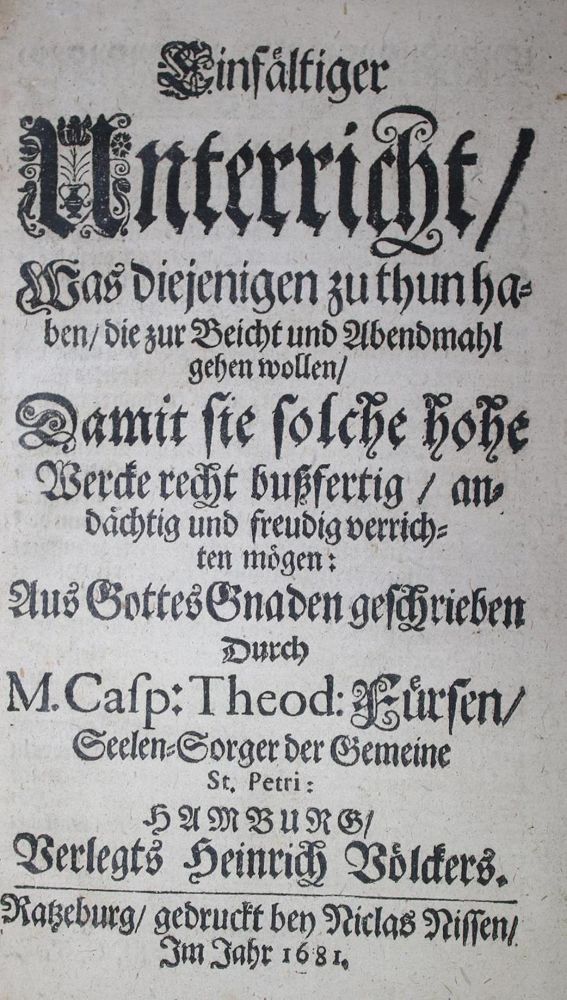 Einfältiger
Unterricht/
Was diejenigen zu thun ha-
ben/ die zur Beicht und Abendmahl
gehen wollen/
Damit sie solche hohe
Wercke recht bußfertig / an-
dächtig und freudig verrich-
ten mögen:
Aus Gottes Gnaden geschrieben
Durch
M. Casp: Theod: Fürsen/
Seelen-Sorger der Gemeine
St. Petri:
HAMBURG/
Verlegts Heinrich Völckers.
Ratzeburg/ gedruckt bey Niclas Nissen/
Im Jahr 1681.